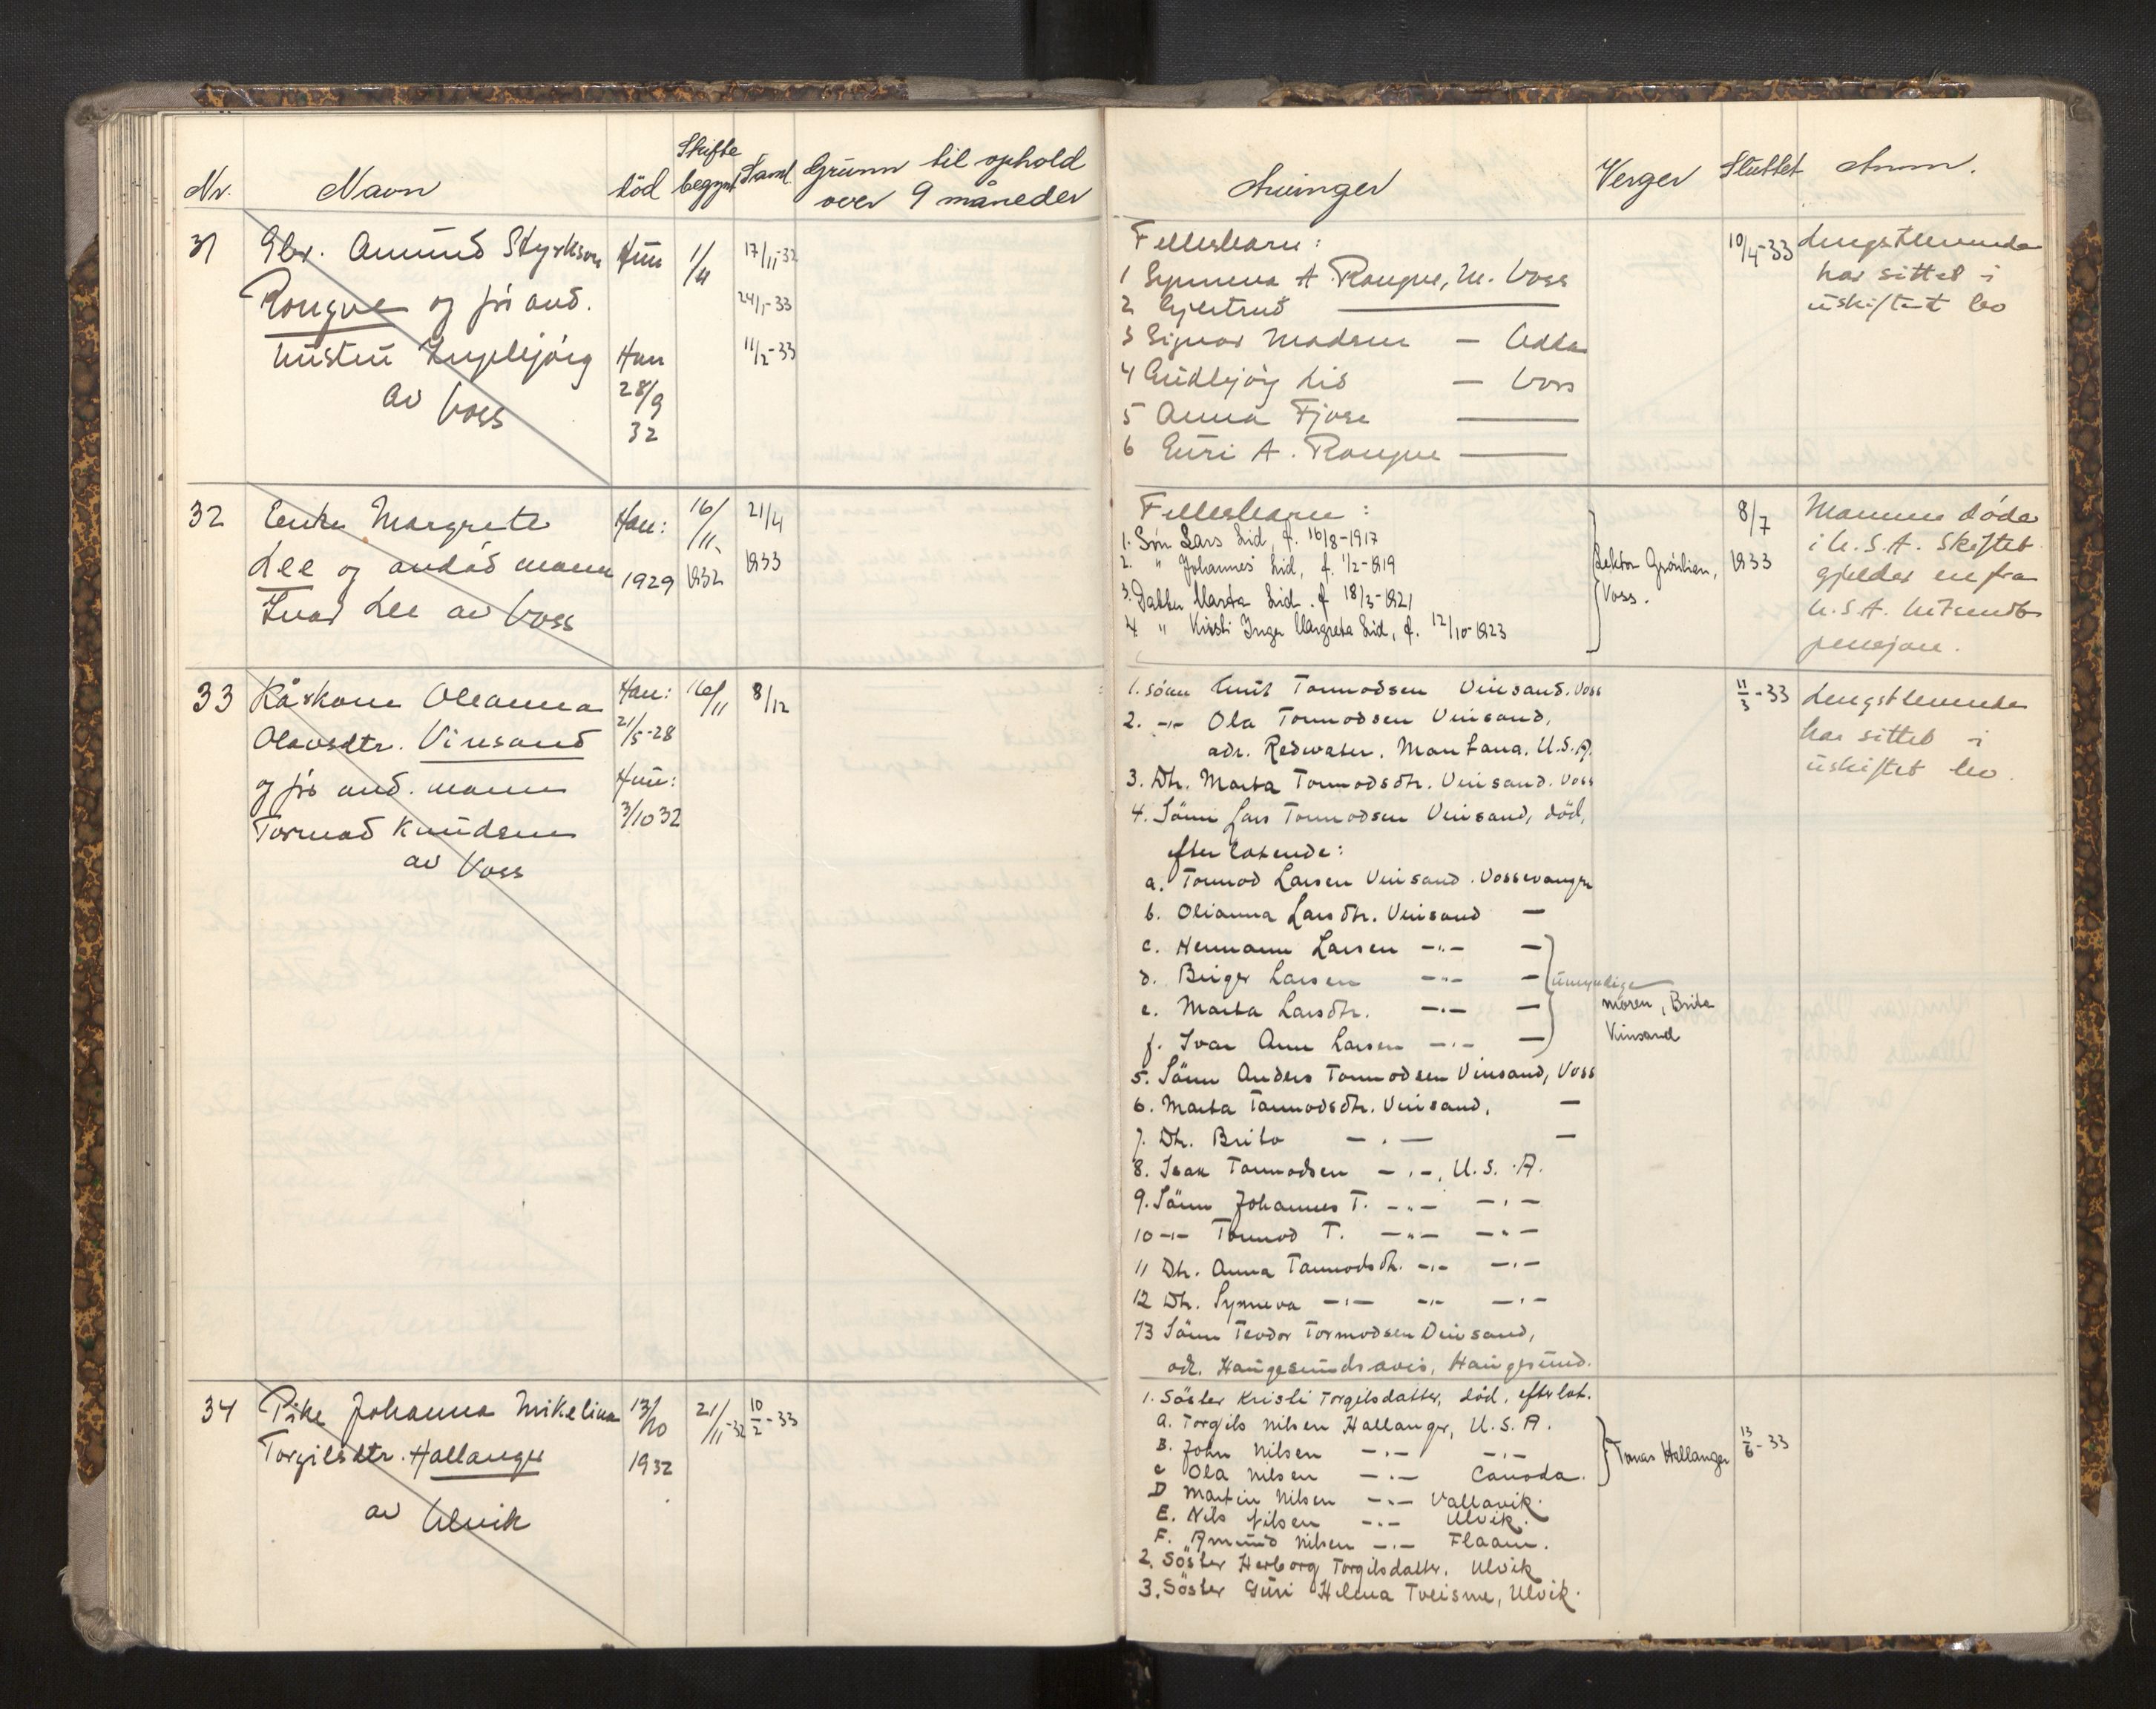 Nr. Navn död Skifte begynt Saml. Grunn til ophold over 9 måneder
31 Gbr. Amund Styrkson Hun 1/11 17/11-32
Rongve og fri avd. 24/1-33
hustru Ingebjörg Han 11/2-33
av Voss 28/9
32
32 Enke Margrete Han: 16/11 21/4
Lee og avdöd mann 1929 1932 1933
Ivar Lee av Voss
33 Kårkone Oleanna Han: 16/11 8/12
Olavsdtr. Vinsand 21/5-28
og fri avd. mann Hun:
Tormod Knudsen 3/10 32
av Voss
34 Pike Johanna Mikelina 13/10 21/11-32 10/2-33
Torgilsdtr. Hallanger 1932
av Ulvik
Arvinger Verger Sluttet Anm.
Fellesbarn: 10/4-33 Lengstlevende
1 Synneva A. Rongve, Voss har sittet i
2 Gjertrud uskiftet bo
3 Signar Madsen — Odda
4 Gudbjörg Lid — Voss
5 Anna Fjose
6 Guri A. Rongve
Fellesbarn: 8/7 Mannen döde
1. Sön Lars Lid, f. 16/8-1917 i U.S.A. Skiftet
2. " Johannes Lid, f. 1/2-1919 Lektor Grönlien, 1933 gjelder en fra
3. Datter Marta Lid. f 18/3-1921 Voss. U.S.A. utsendt
4 " Kirsti Inger Margreta Lid, f. 12/10-1923 pensjon.
1. sönn Knut Tormodsen Vinsand. Voss 11/3-33 Lengstlevende
2. -"- Ola Tormodsen Vinsand, har sittet i
adr. Redwater. Montana. U.S.A. uskiftet bo.
3. Dtr. Marta Tormodsdtr. Vinsand. Voss
4. Sönn Lars Tormodsen Vinsand, död,
efterlatende:
a. Tormod Larsen Vinsand. Vossevangen
b. Olianna Larsdtr. Vinsand —
c. Hermann Larsen -"- —
d. Birger Larsen -"- — umyndige
e. Marta Larsdtr. -"- — moren, Brita
f. Ivar Arne Larsen -"- — Vinsand
5. Sönn Anders Tormodsen Vinsand, Voss
6. Marta Tormodsdtr. Vinsand, —
7. Dtr. Brita -"- —
8. Isak Tormodsen -"-, U.S.A.
9. Sönn Johannes T. -"- -"-
10 -"- Tormod T. -"- -"-
11 Dtr. Anna Tormodsdtr. -"- -"-
12 Dtr. Synneva -"- -"- -"-
13 Sönn Teodor Tormodsen Vinsand,
adr. Haugesunds avis, Haugesund.
1. Söster Kristi Torgilsdatter, död, efterlat.
a. Torgils Nilsen Hallanger, U.S.A.
B. John Nilsen -"- -"- Tomas Hallanger 13/6-33
c Ola Nilsen -"- Canada.
D Martin Nilsen -"- Vallavik.
E. Nils Nilsen -"- Ulvik.
F. Amund Nilsen -"- Flaam.
2. Söster Herborg Torgilsdatter, Ulvik
3. Söster Guri Helena Tveisme, Ulvik.